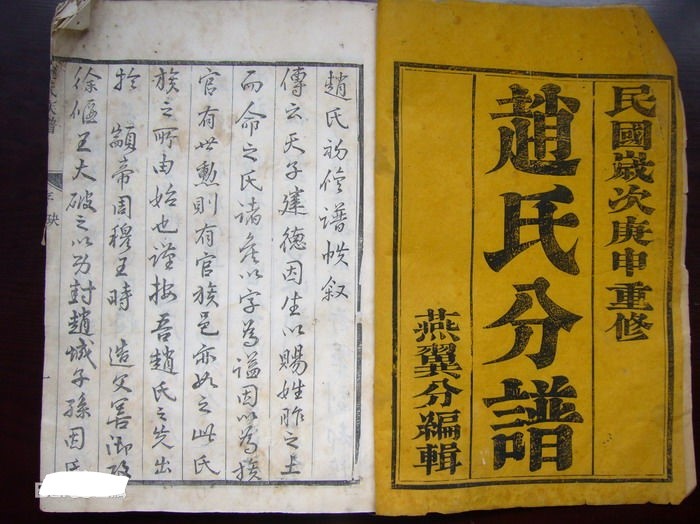 民國歲次庚申重修
趙氏分譜
燕翼分編輯
趙氏初修譜帙叙
傳云天子建德因生以賜姓胙之土
而命之氏諸侯以字為謚因以為族
官有世勲則有官族邑亦如之此氏
族之所由始也謹按吾趙氏之先出
於顓帝周穆王時造父善御攻
徐偃王大破之以功封趙城子孫因氏